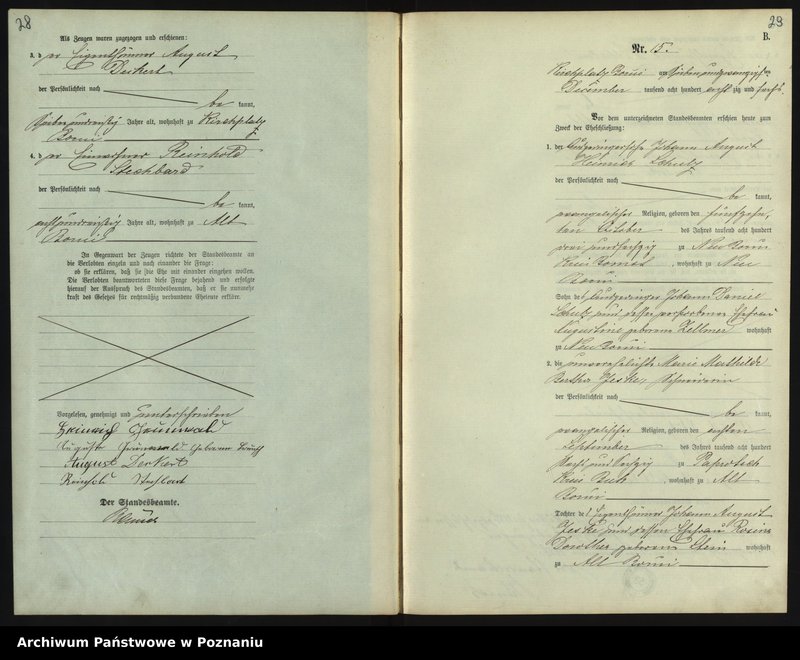 28
Als Zeugen waren zugezogen und erschienen:
3. der Eigenthümer August
Deckert
der Persönlichkeit nach
be kannt,
Jahre alt, wohnhaft zu Kirchplatz
Borui
4. der Reinhold
der Persönlichkeit nach
be kannt,
Jahre alt, wohnhaft zu Alt
Borui
In Gegenwart der Zeugen richtete der Standesbeamte an
die Verlobten einzeln und nach einander die Frage:
ob sie erklären, daß sie die Ehe mit einander eingehen wollen.
Die Verlobten beantworteten diese Frage bejahend und erfolgte
hierauf der Ausspruch des Standesbeamten, daß er sie nunmehr
kraft des Gesetzes für rechtmäßig verbundene Eheleute erkläre.
Vorgelesen, genehmigt und unterschrieben
Heinrich Grunwald
Auguste Grunwald geborene
August Deckert
Reinhold
Der Standesbeamte.
29
B.
Nr. 5.
Kirchplatz Borui am siebenundzwanzigsten
December tausend acht hundert acht zig und sechs.
Vor dem unterzeichneten Standesbeamten erschienen heute zum
Zweck der Eheschließung:
1. der Johann August
Heinrich Schulz
der Persönlichkeit nach
be kannt,
evangelischer Religion, geboren den fünfzehn
ten October des Jahres tausend acht hundert
drei und sechzig zu Neu Borui
Kreis Bomst, wohnhaft zu Neu
Borui
Sohn des Johann Daniel
Schulz und dessen verstorbener Ehefrau
Augustine geborene Zellmer wohnhaft
zu Neu Borui
2. die unverehelichte Marie Mathilde
Bertha Jeske,
der Persönlichkeit nach
be kannt,
evangelischer Religion, geboren den achten
September des Jahres tausend acht hundert
sechs und sechzig zu Paprotsch
Kreis Buk, wohnhaft zu Alt
Borui
Tochter des Eigenthümer Johann August
Jeske und dessen Ehefrau Rosine
Dorothea geborene Stein wohnhaft
zu Alt Borui
Archiwum Państwowe w Poznaniu